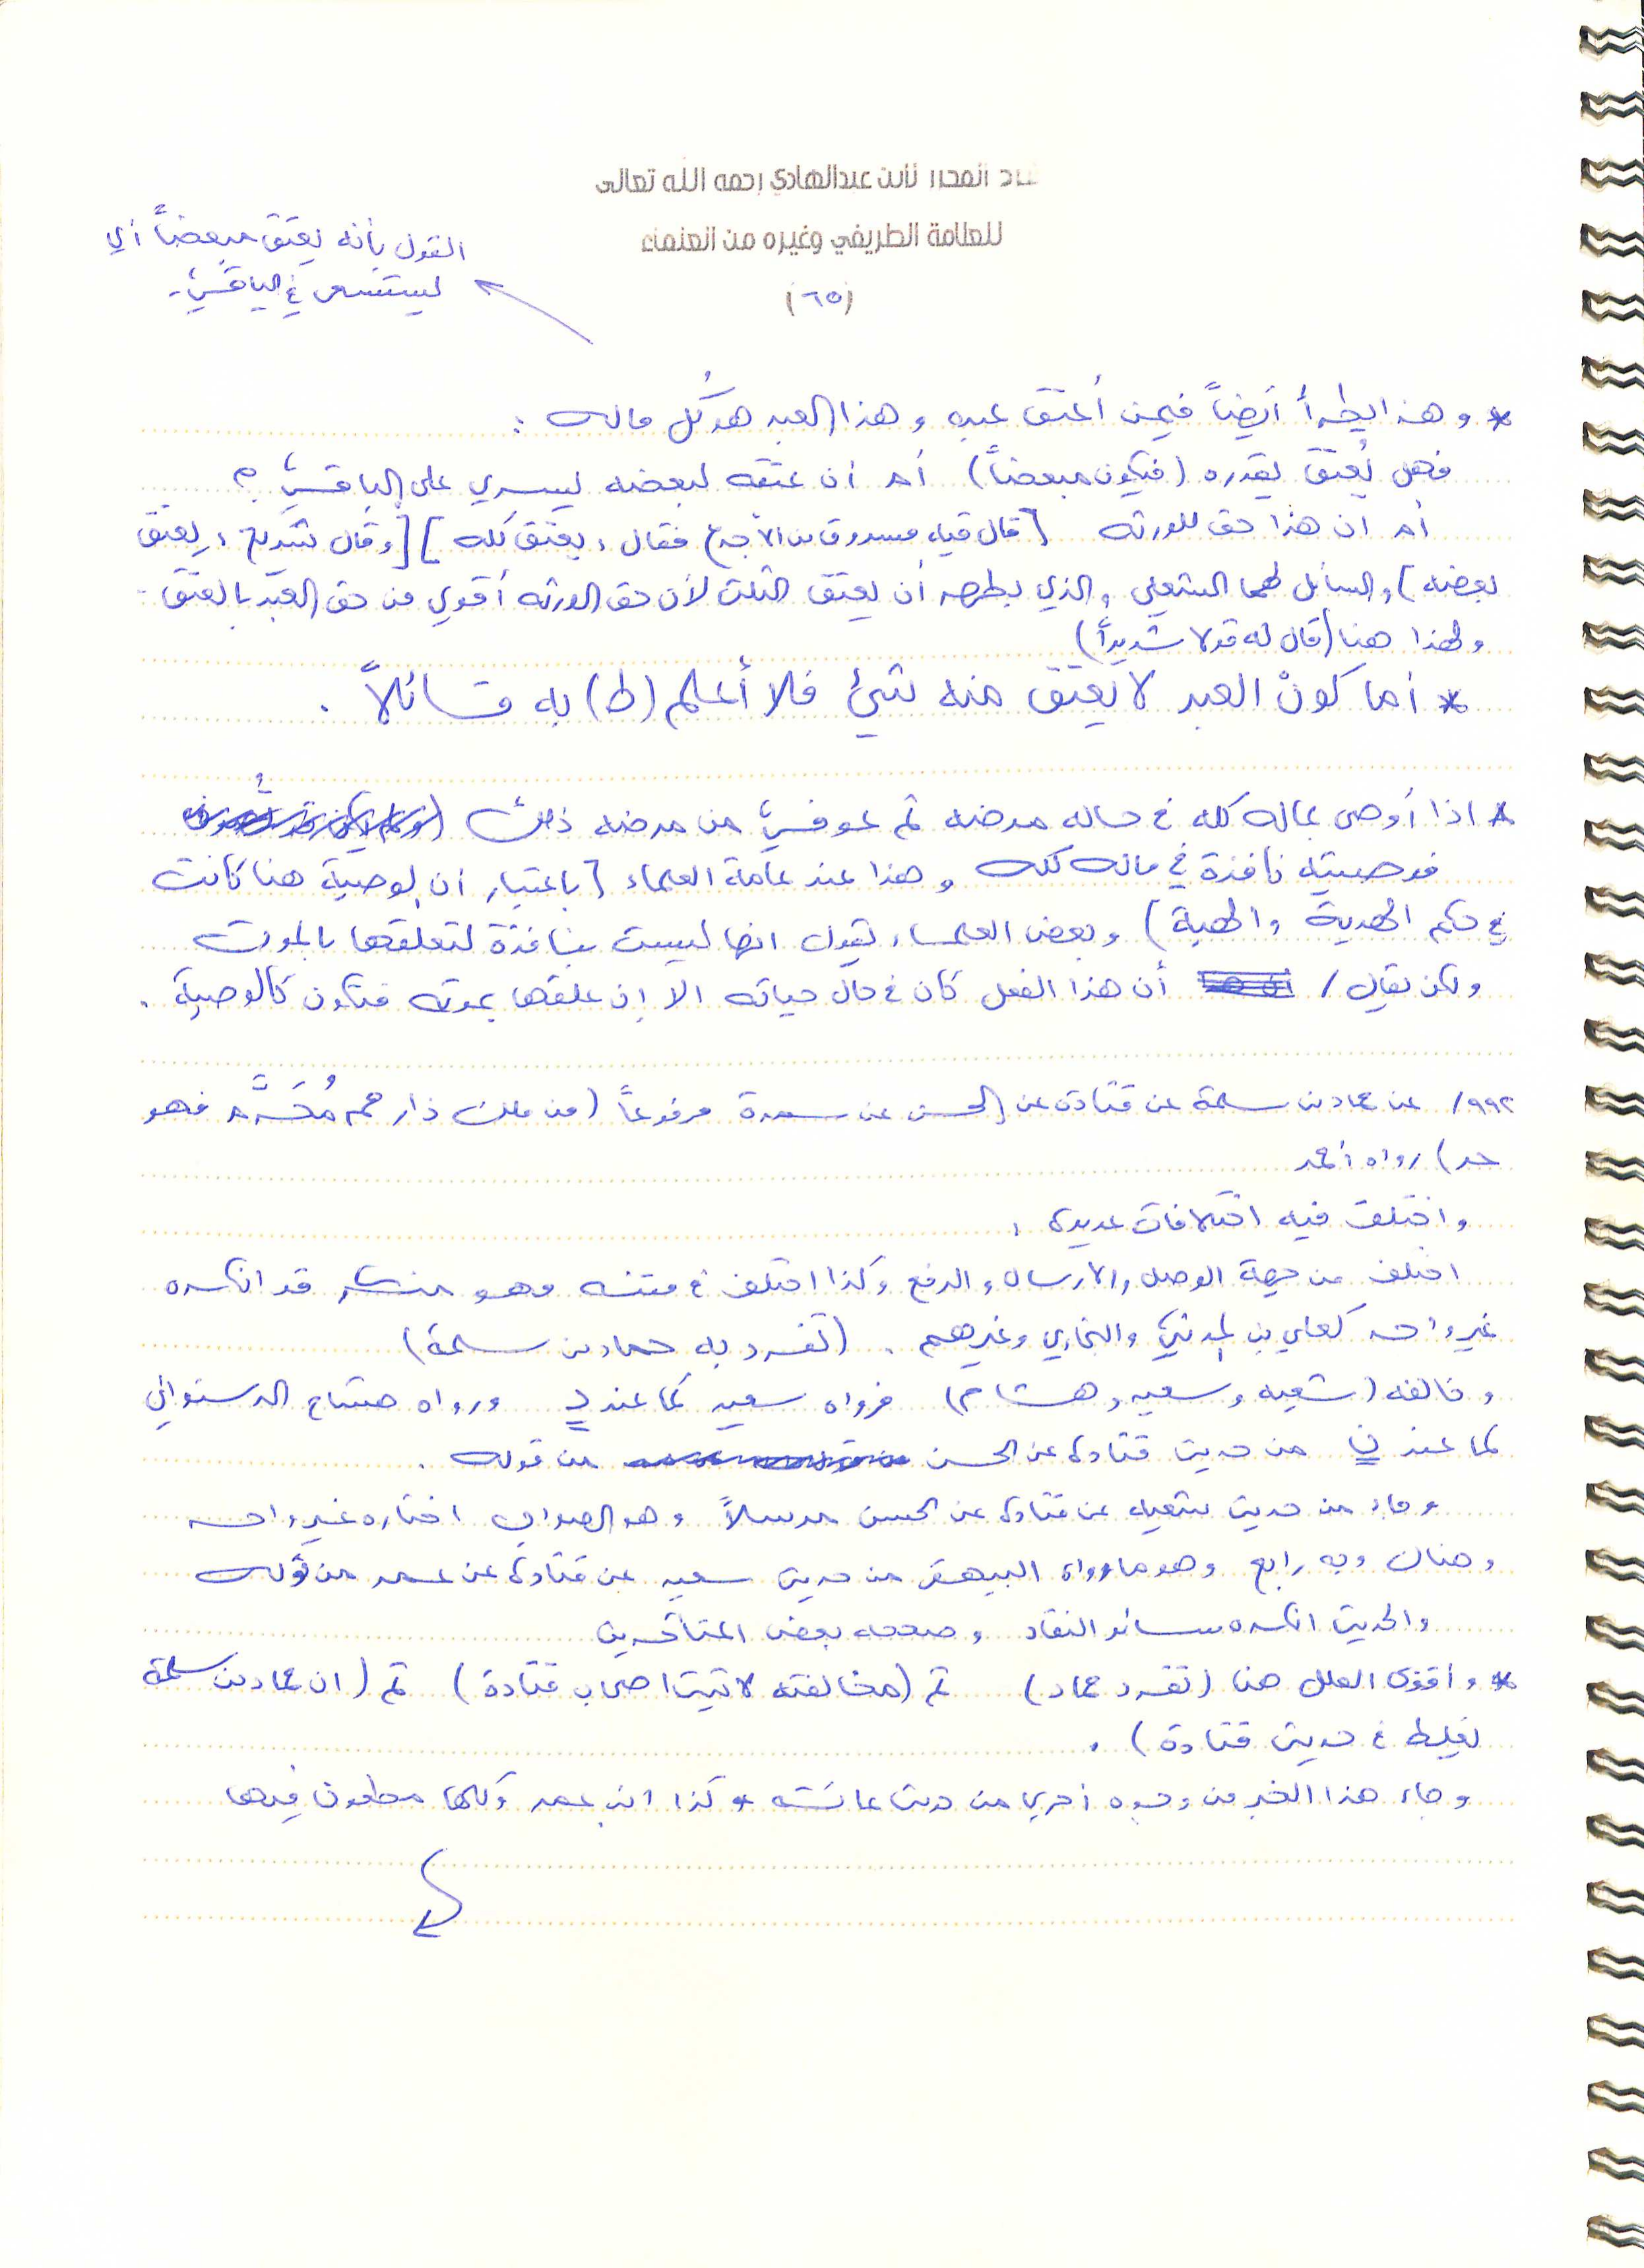 المحرر لابن عبدالهادي رحمه الله تعالى
للعلامة الطريفي وغيره من العلماء
(٦٥)
القول بأنه يعتق مبعضاً أي
ليستسعى في الباقي.
* وهذا يطرأ أيضاً فيمن أعتق عبده وهذا العبد هو كُل ماله :
فهل يُعتق بقدره (فيكون مبعضاً) أم أن عتقه لبعضه ليسري على الباقي ؟
أم ان هذا حق للورثة [قال فيه مسروق بن الأجدع فقال: يعتق كله] [وقال شريح: يعتق
بعضه) والسائل لهما الشعبي والذي يظهر أن يعتق الثلث لأن حق الورثة أقوى من حق العبد بالعتق.
ولهذا هنا (قال له قولا شديداً)
* أما كونْ العبد لا يعتق منه شيئ فلا أعلم (ط) به قائلاً .
* اذا أوصى بماله كله في حاله مرضه ثم عوفي من مرضه ذلك
فوصيته نافذة في ماله كله وهذا عند عامة العلماء [باعتبار أن الوصية هنا كانت
في حكم الهدية والهبة) وبعض العلماء يقول انها ليست بنافذة لتعلقها بالموت
ولكن يقال / أن هذا الفعل كان في حال حياته الا إن علقها بموته فتكون كالوصية .
٩٩٢/ عن حماد بن سلمة عن قتادة عن الحسن عن سمرة مرفوعاً (من ملك ذا رحم مُحَرَّم فهو
حر) رواه أحمد
واختلف فيه اختلافات عديدة ،
اختلف من جهة الوصل والارسال والرفع وكذا اختلف في متنه وهو منكر قد انكره
غير واحد كعلي بن المديني والبخاري وغيرهم . (تفرد به حماد بن سلمة)
وخالفه (شعبه وسعيد وهشام) فرواه سعيد كما عند د ورواه هشام الدستوائي
كما عند ن من حديث قتادة عن الحسن من قوله .
وجاء من حديث شعبه عن قتادة عن الحسن مرسلاً وهو الصواب اختاره غير واحد
وهناك وجه رابع وهو ما رواه البيهقي من حديث سعيد عن قتادة عن عمر من قوله
والحديث انكره سائر النقاد وصححه بعض المتأخرين
* وأقوى العلل هنا (تفرد حماد) ثم (مخالفته لاثبت اصحاب قتادة) ثم (ان حماد بن سلمة
يغلط في حديث قتادة) .
وجاء هذا الخبر من وجوه أخرى من حديث عائشه وكذا ابن عمر وكلها مطعون فيها